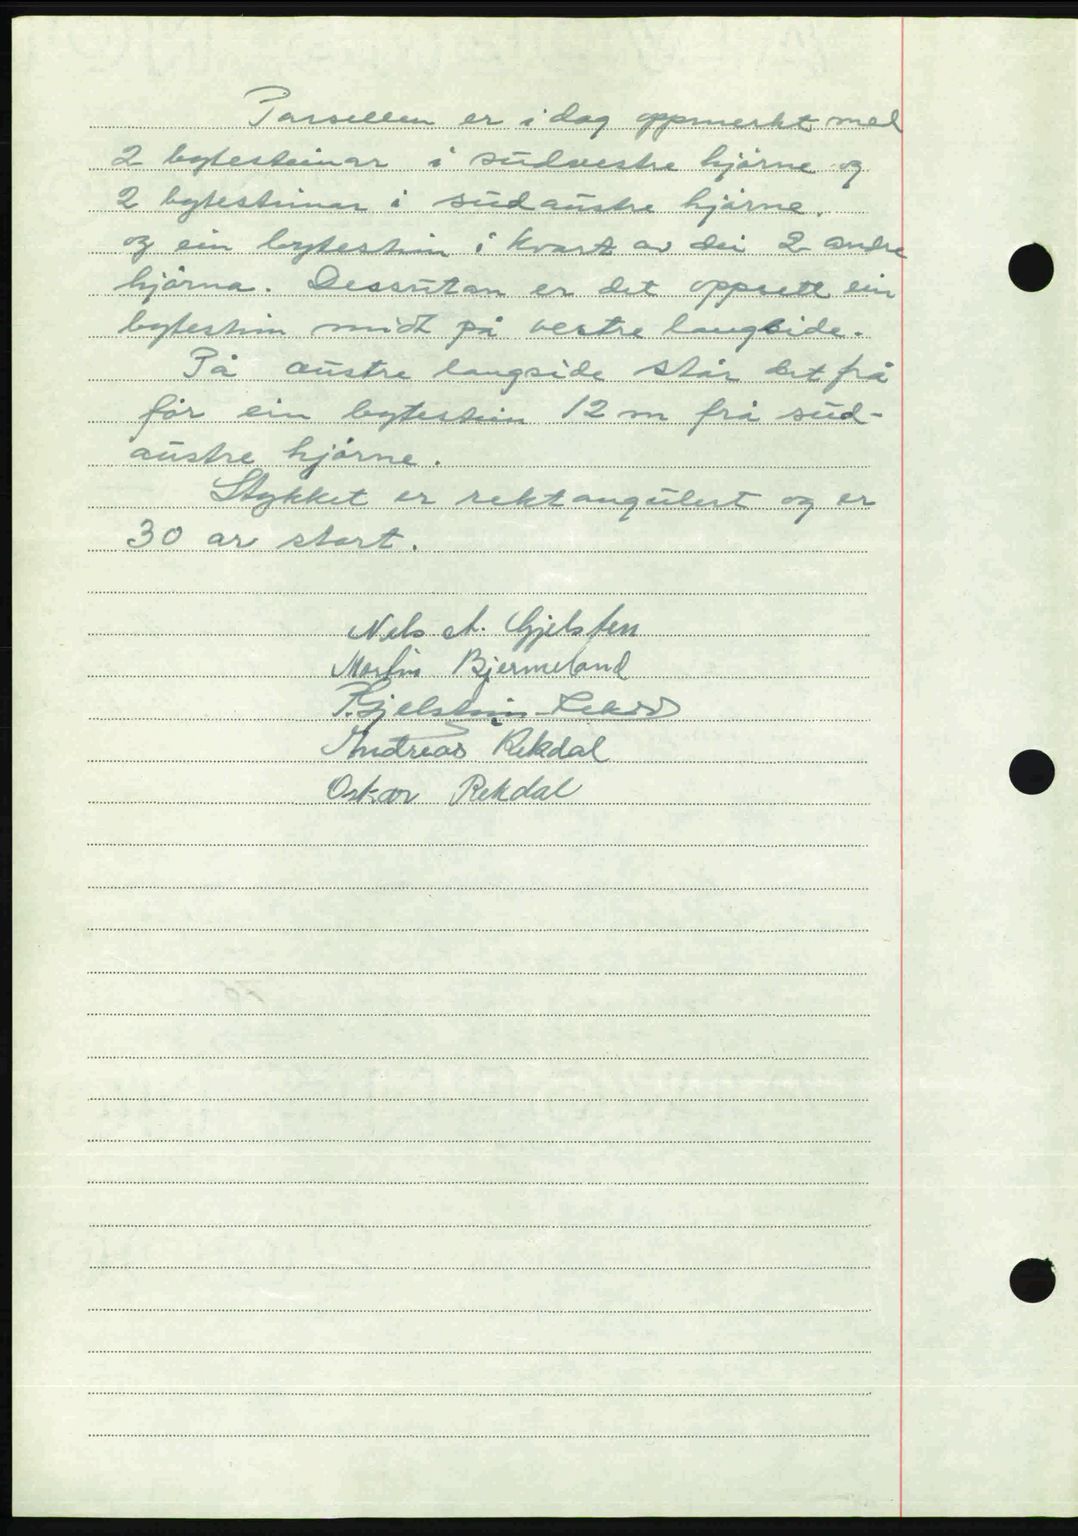 Parsellen er i dag oppmerkt med
2 bytesteinar i südvestre hjørne og
2 bytesteinar i südaustre hjørne.
og ein bytestein i kvart av dei 2 andre
hjørna. Dessutan er det oppsett ein
bytestein midt på vestre langside.
På austre langside står det frå
før ein bytestein 12 m frå süd-
austre hjørne.
Stykket er rektangulert og er
30 ar stort.
Nils A. Gjelsten
Martin Bjermeland
P. Gjelstein
Andreas Rekdal
Oskar Rekdal